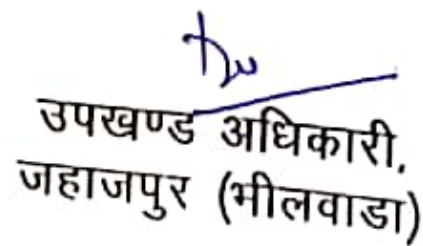 उपखण्ड अधिकारी,
जहाजपुर (भीलवाडा)